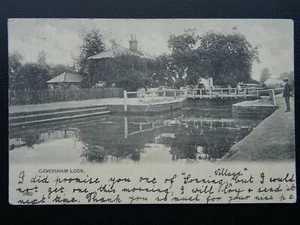 CAVERSHAM LOCK.
Village
I did promise you one of Sonning, but I could
not get one this morning, I will try & send it
next time. Thank you so much for your nice p.c